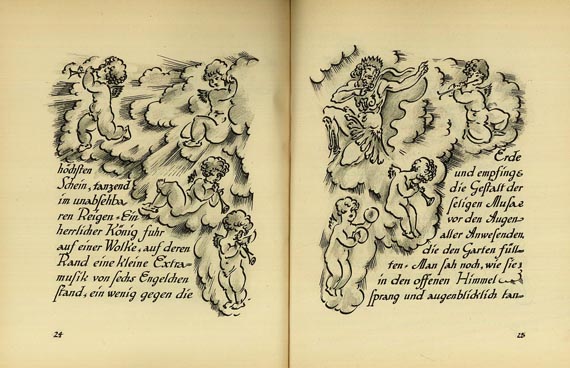 höchsten
Schein, tanzend
im unabsehba-
ren Reigen. Ein
herrlicher König fuhr
auf einer Wolke, auf deren
Rand eine kleine Extra-
musik von sechs Engelchen
stand, ein wenig gegen die
24
Erde
und empfing
die Gestalt der
seligen Musa
vor den Augen
aller Anwesenden,
die den Garten füll-
ten. Man sah noch, wie sie
in den offenen Himmel
sprang und augenblicklich tan-
25